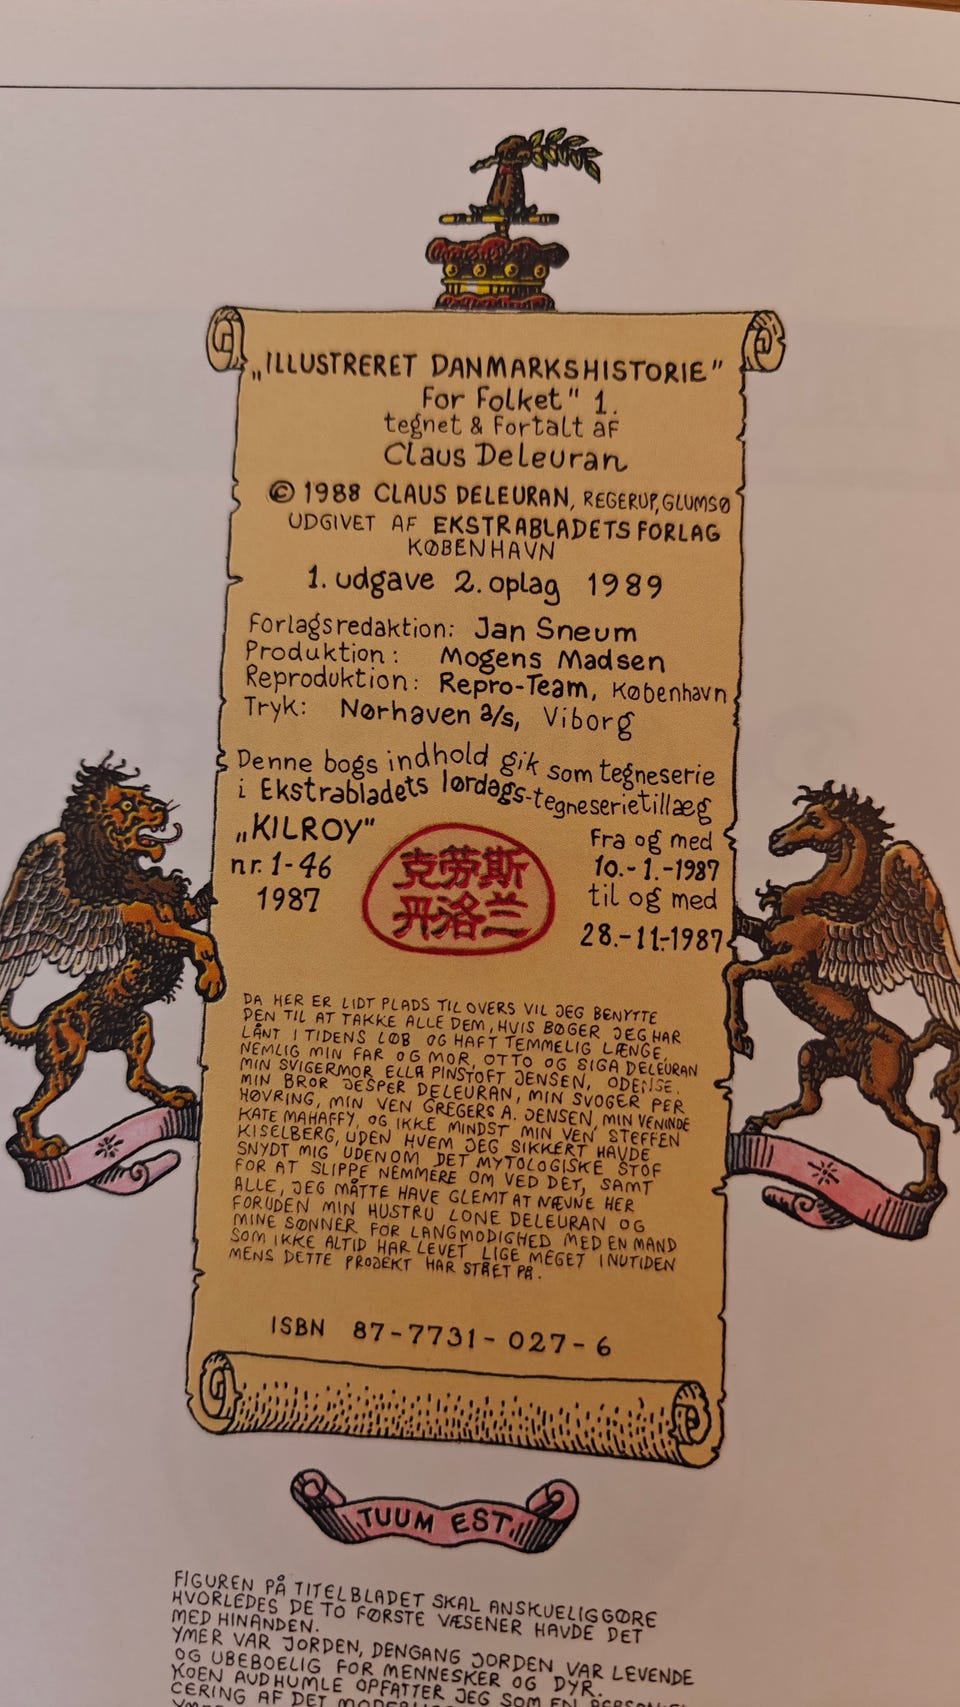 „ILLUSTRERET DANMARKSHISTORIE"
For Folket" 1.
tegnet & Fortalt aF
Claus Deleuran
© 1988 CLAUS DELEURAN, REGERUP, GLUMSØ
UDGIVET AF EKSTRABLADETS FORLAG
KØBENHAVN
1. udgave 2. oplag 1989
Forlagsredaktion: Jan Sneum
Produktion: Mogens Madsen
Reproduktion: Repro-Team, København
Tryk: Nørhaven a/s, Viborg
Denne bogs indhold gik som tegneserie
i Ekstrabladets lørdags-tegneserietillæg
„KILROY"
nr. 1-46
1987
克劳斯
丹洛兰
Fra og med
10.-1.-1987
til og med
28.-11.-1987
DA HER ER LIDT PLADS TIL OVERS VIL JEG BENYTTE
DEN TIL AT TAKKE ALLE DEM, HVIS BØGER JEG HAR
LÅNT I TIDENS LØB OG HAFT TEMMELIG LÆNGE,
NEMLIG MIN FAR OG MOR, OTTO OG SIGA DELEURAN
MIN SVIGERMOR ELLA PINSTOFT JENSEN, ODENSE.
MIN BROR JESPER DELEURAN, MIN SVOGER PER
HØVRING, MIN VEN GREGERS A. JENSEN, MIN VENINDE
KATE MAHAFFY, OG IKKE MINDST MIN VEN STEFFEN
KISELBERG, UDEN HVEM JEG SIKKERT HAVDE
SNYDT MIG UDENOM DET MYTOLOGISKE STOF
FOR AT SLIPPE NEMMERE OM VED DET, SAMT
ALLE, JEG MÅTTE HAVE GLEMT AT NÆVNE HER
FORUDEN MIN HUSTRU LONE DELEURAN OG
MINE SØNNER FOR LANGMODIGHED MED EN MAND
SOM IKKE ALTID HAR LEVET LIGE MEGET I NUTIDEN
MENS DETTE PROJEKT HAR STÅET PÅ.
ISBN 87-7731-027-6
TUUM EST.
FIGUREN PÅ TITELBLADET SKAL ANSKUELIGGØRE
HVORLEDES DE TO FØRSTE VÆSENER HAVDE DET
MED HINANDEN.
YMER VAR JORDEN, DENGANG JORDEN VAR LEVENDE
OG UBEBOELIG FOR MENNESKER OG DYR.
KOEN AUDHUMLE OPFATTER JEG SOM EN
CERING AF DET